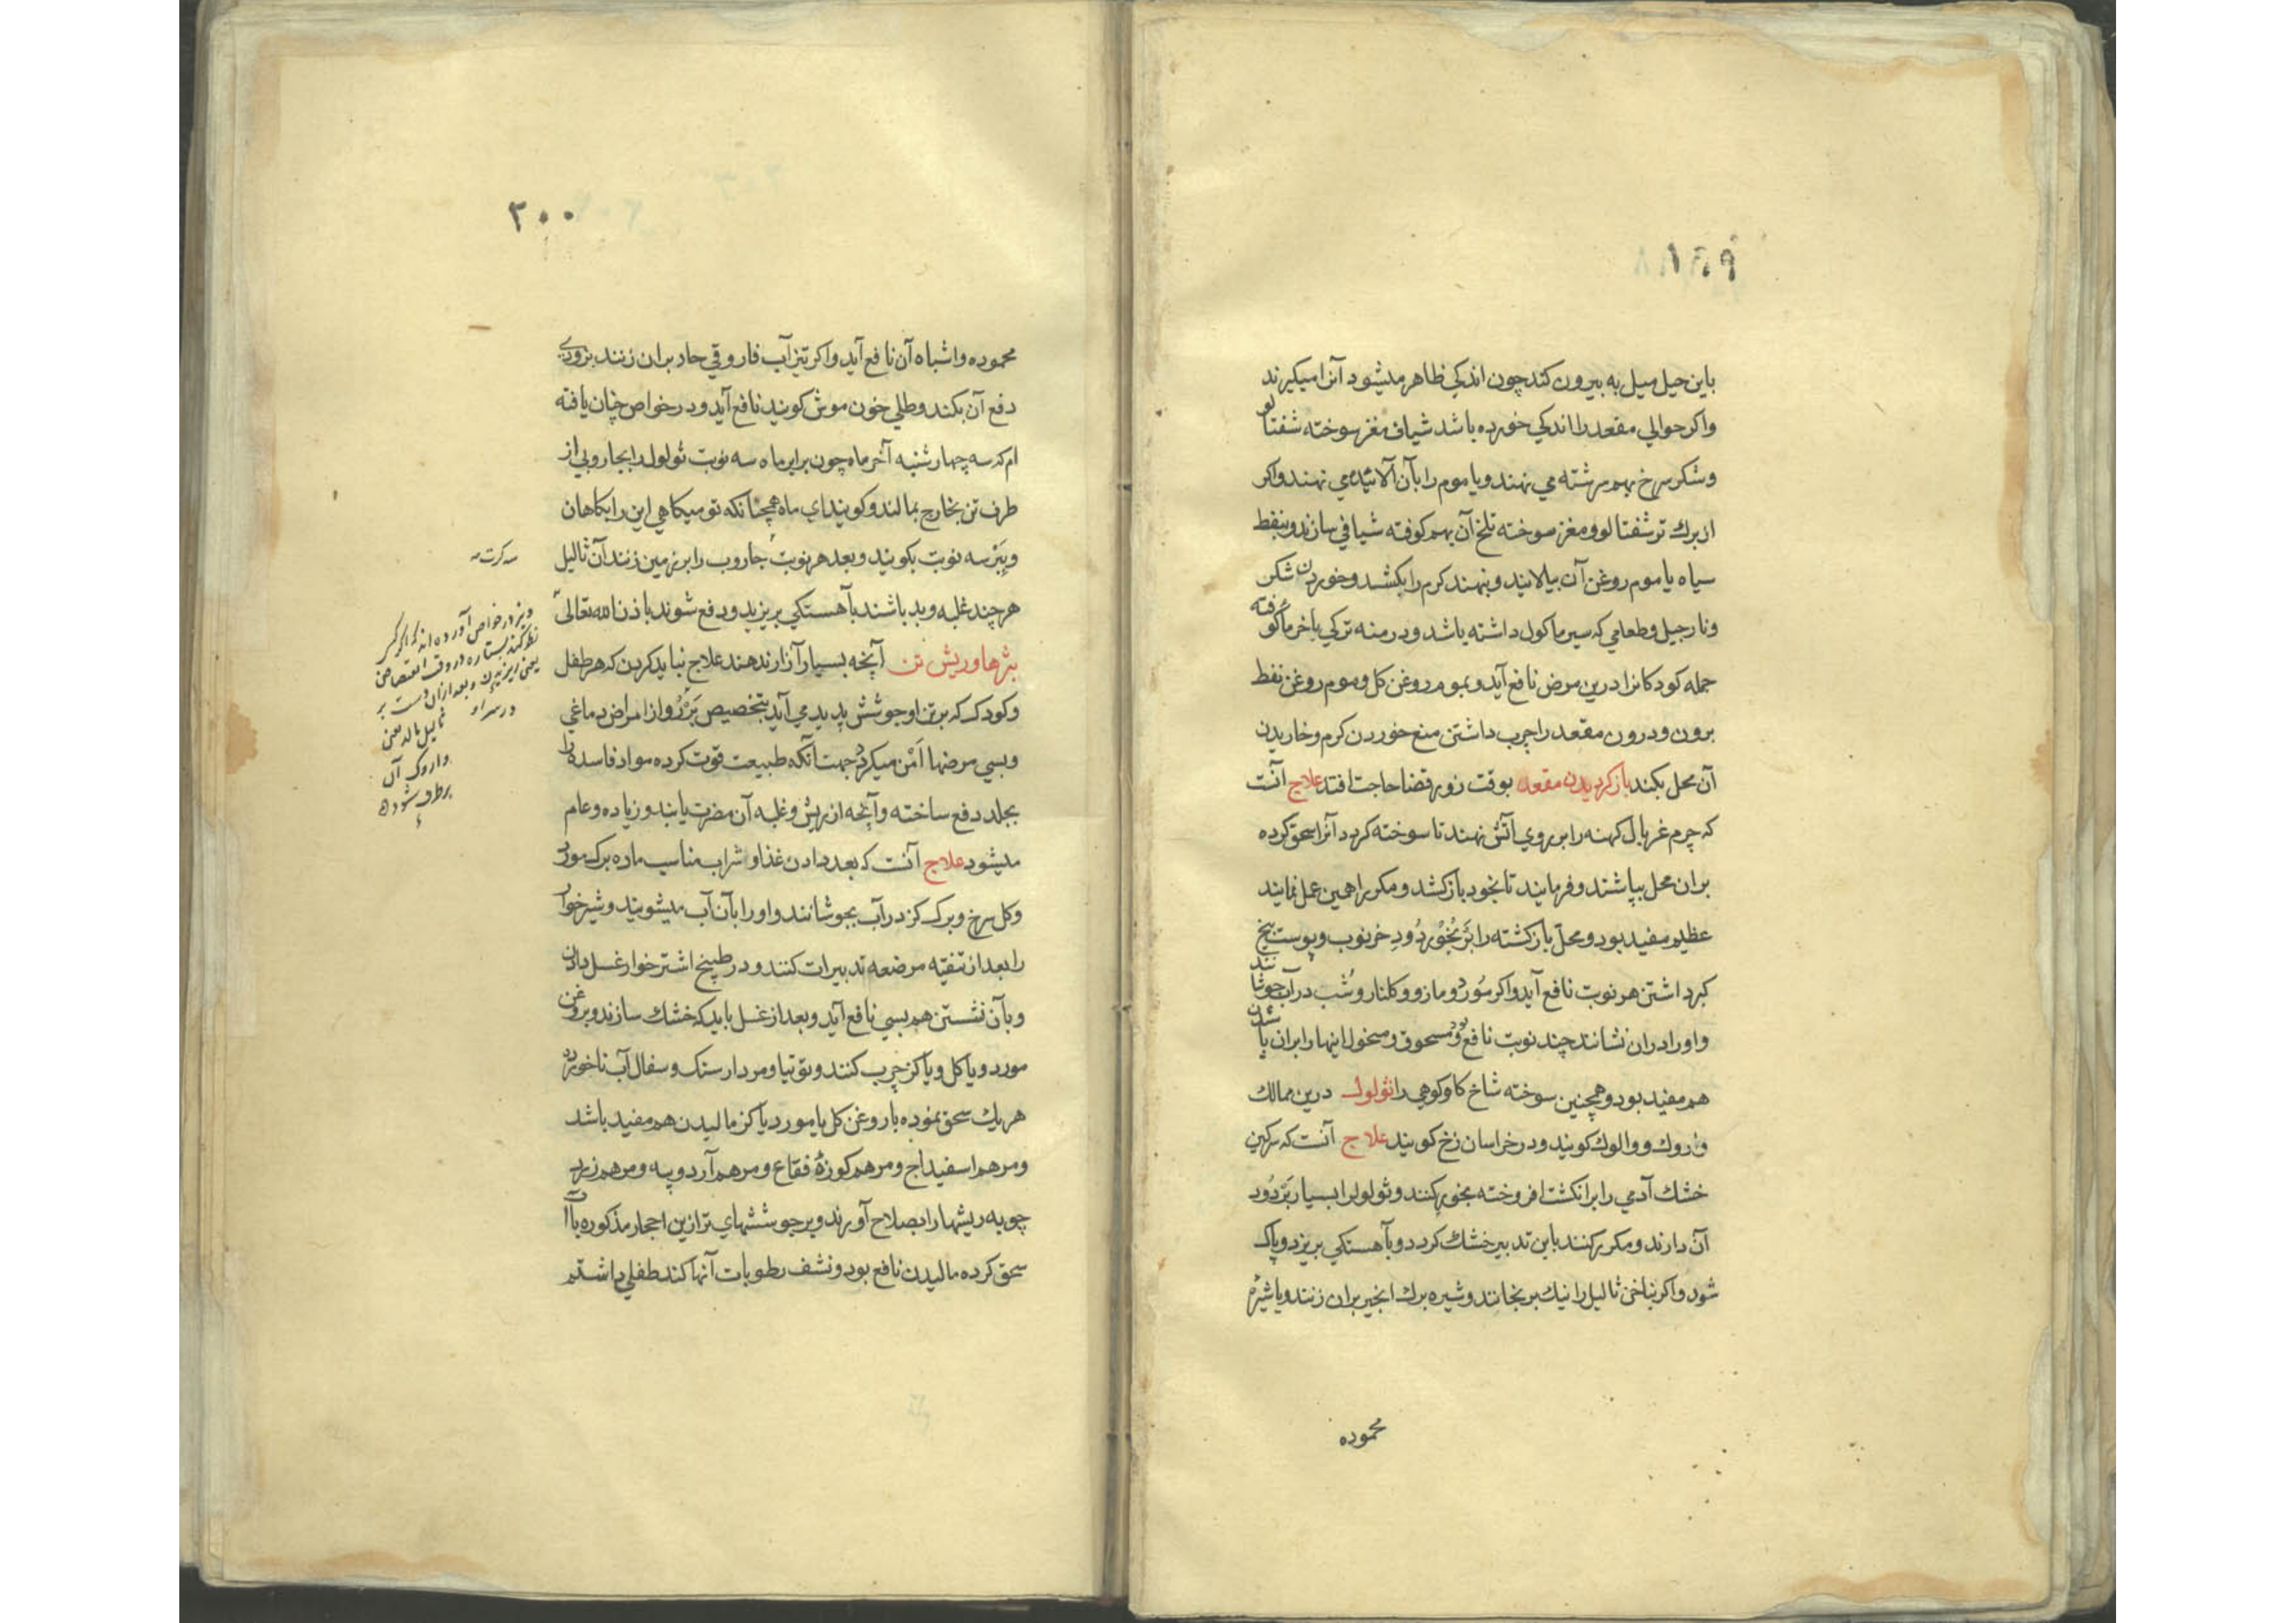 ۱۹۹
باین حیل میل به بیرون کند چون اندکی ظاهر میشود آنرا میگیرند
واکر حوالی مقعد را اندکی خورده باشد شیاف مغز سوخته شفتالو
وشکر سرخ بهم سرشته می نهند ویا موم را بآن آلائیده می نهند واکر
از برك تر شفتالو ومغز سوخته تلخ آن بهم کوفته شیافی سازند وبنفط
سیاه یا موم روغن آن بیلایند وبنهند کرم را بکشد وخوردن شکر
ونارجیل وطعامی که سیر ماکول داشته باشد ودرمنه ترکی باخرما کوفته
جمله کودکانرا درین مرض نافع آید وبموم روغن کل وموم روغن نفط
برون ودرون مقعد را چرب داشتن منع خوردن کرم وخاریدن
آن محل بکند بازکردیدن مقعد بوقت زور قضا حاجت افتد علاج آنست
که چرم غربال کهنه را بر روی آتش نهند تا سوخته کردد آنرا سحق کرده
بران محل بپاشند وفرمایند تا بخود بازکشد ومکررا همین عمل نمایند
عظیم مفید بود ومحل بازکشته را بر بخور دود خرنوب وپوست بیخ
کبر داشتن هر نوبت نافع آید واکر مورد ومازو وکلنار وشب در آب جوشانند
واورا دران نشانند چند نوبت نافع بود ومسحوق ومنخول اینها را بران پاشیدن
هم مفید بود وهمچنین سوخته شاخ کاو کوهی را ثولول درین ممالك
واروك ووالوك کویند ودر خراسان زخ کویند علاج آنست که سرکین
خشك آدمی را بر انکشت افروخته بخور کنند وثولول را بسیار بر دود
آن دارند ومکرر کنند باین تدبیر خشك کردد وبآهستکی بریزد وپاك
شود واکر بناخن ثالیل را نیك برنجانند وشیره برك انجیر بران زنند ویا شیرهٔ
محموده
۲۰۰
محموده واشباه آن نافع آید واکر تیزآب فاروقی حاد بران زنند بزودی
دفع آن بکند وطلی خون موش کویند نافع آید ودر خواص چنان یافته
ام که سه چهارشنبه آخر ماه چون برابر ماه سه نوبت ثولول را بجاروبی از
طرف تن بخارج بمالند وکویند ای ماه همچنانکه تو میکاهی این را بکاهان
وبر سه نوبت بکویند وبعد هر نوبت جاروب را بر زمین زنند آن ثالیل
هرچند غلبه وبد باشند بآهستکی بریزید ودفع شوند باذن الله تعالی
بثرها وریش تن آنچه بسیار آزار ندهند علاج نباید کردن که هر طفل
وکودك که بر تن او جوشش پدید می آید بتخصیص بر رو از امراض دماغی
وبسی مرضها امن میکردد جهت آنکه طبیعت قوت کرده مواد فاسد را
بجلد دفع ساخته وآنچه از ریش وغلبه آن مضرت یابند وزیاده وعام
میشود علاج آنست که بعد دادن غذا وشراب مناسب ماده برك مورد
وکل سرخ وبرك کز در آب بجوشانند واورا بآن آب میشویند وشیرخوار
را بعد از تنقیه مرضعه تدبیرات کنند ودر طبیخ اشترخوار غسل دادن
وبآن نشستن هم بسی نافع آید وبعد از غسل باید که خشك سازند وبروغن
مورد ویا کل ویا کز چرب کنند وتوتیا ومردارسنك وسفال آب ناخورده
هر یك سحق نموده با روغن کل یا مورد یا کز مالیدن هم مفید باشد
ومرهم اسفیداج ومرهم کوزهٔ فقاع ومرهم آرد وپیه ومرهم زرد
چوبه ریشها را بصلاح آورند وبر جوششهای تر ازین احجار مذکوره بآب
سحق کرده مالیدن نافع بود ونشف رطوبات آنها کند طفلی داشتم
سه کرت
ونیز در خواص آورده اند که اگر کسی
نظر کند بستاره در وقت انقضاض
یعنی ریزیدن وبعد ازان دست بر
ثالیل مالد یعنی
واروک آن
برطرف شود